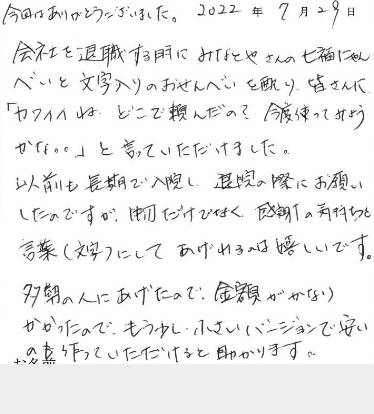 今回はありがとうございました。 2022年7月29日
会社を退職する時に みなとやさんの七福にゃん
べいと文字入りのおせんべいを配り、皆さんに
「カワイイね、どこで頼んだの？ 今度使ってみよう
かな。。」と言っていただけました。
以前も長期で入院し、退院の際にお願い
したのですが、味だけでなく、感謝の気持ちを
言葉（文字）にして あげれるのは嬉しいです。
多勢の人にあげたので、金額がかなり
かかったので、もう少し、小さいバージョンで安い
のを作っていただけると助かります。